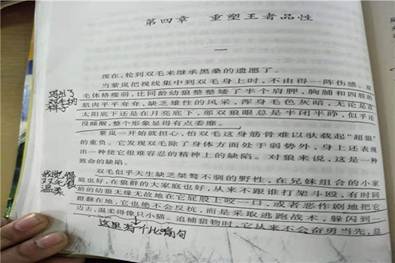 第四章 重塑王者品性
一
现在，轮到双毛来继承黑桑的遗愿了。
当紫岚把视线集中到双毛身上时，不由得一阵伤感。双
毛体格瘦弱，比同龄幼狼整整矮了半个肩胛，胸脯和四肢的
肌肉平平夸夸，缺乏雄性的风采，浑身毛色灰暗，无论是在
太阳底下还是在月亮底下，那双狼眼总是半闭半睁，似乎还
没睡醒，整个形象显得有点委靡。
紫岚一开始就担心，怕双毛这身筋骨难以驮载起“超狼”
的重负。它发现双毛除了身体方面处于弱势外，身上还表现
出一种使它很难容忍的精神上的缺陷。对狼来说，这是一种
致命的缺陷。
双毛似乎天生缺乏桀骜不驯的野性，在兄妹组合的小家
庭也好，在狼群的大家庭也好，从来不跟谁打架斗殴，有时别
的幼狼无缘无故地在它屁股上咬一口，或者恶作剧地把它
蹬翻在地，它也绝不会反抗，而是采取逃跑战术，躲闪到一
边去，温柔得像只小猫。追捕猎物时，它从来不会奋勇当先，总
这里有个比喻句